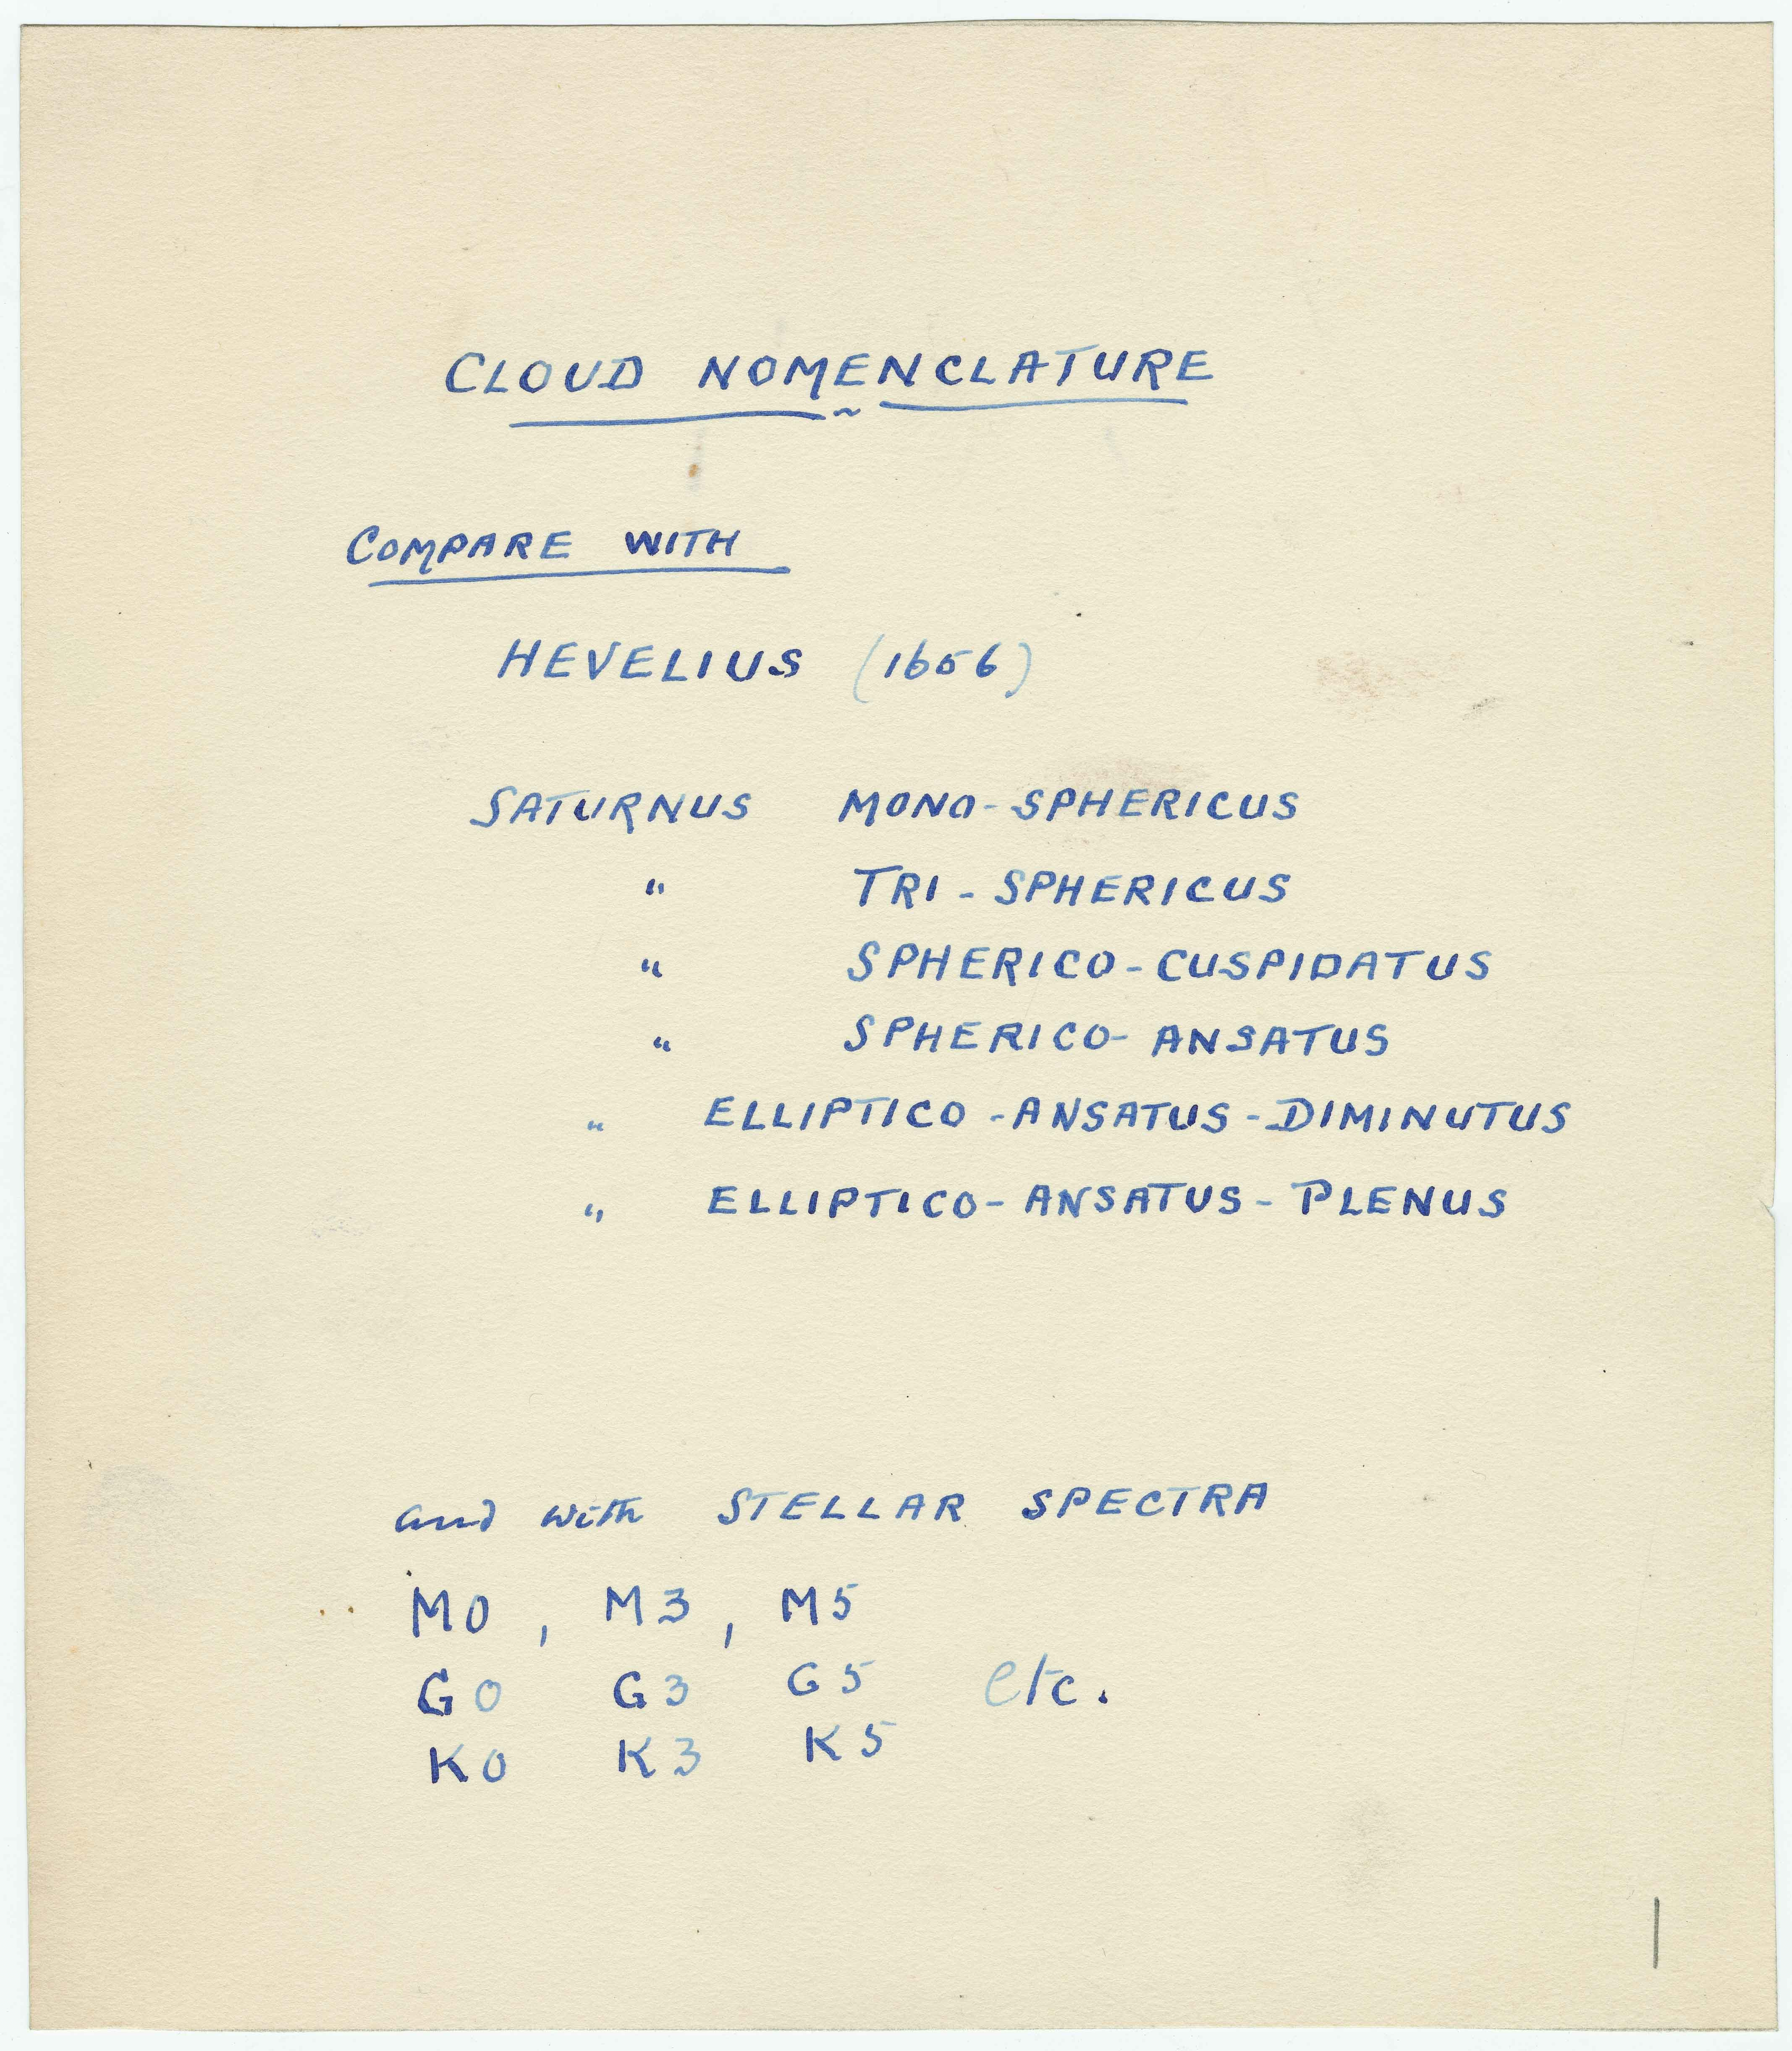 CLOUD NOMENCLATURE
COMPARE WITH
HEVELIUS (1656)
SATURNUS MONO-SPHERICUS
" TRI-SPHERICUS
" SPHERICO-CUSPIDATUS
" SPHERICO-ANSATUS
" ELLIPTICO-ANSATUS-DIMINUTUS
" ELLIPTICO-ANSATUS-PLENUS
and with STELLAR SPECTRA
M0, M3, M5
G0 G3 G5 etc.
K0 K3 K5
1